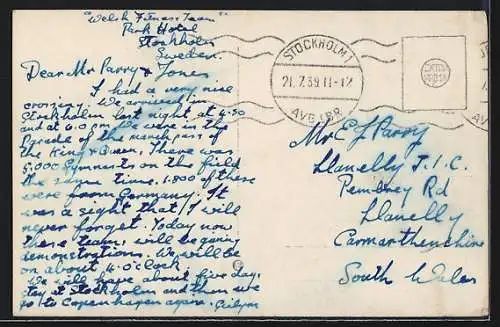 "Welsh Fitness Team"
Park Hotel
Stockholm
Sweden.
Dear Mr Parry & Jones
I had a very nice
crossing. We arrived in
Stockholm last night, at 4.30
and at 6.0 pm we were in the
Parade of the march past
of the King & Queen. There was
5,000 gymnasts on the field
the same time. 1.800 of these
were from Germany. It
was a sight that I will
never forget. Today now
these team, will be
demonstrations. We will be
on about 4.o'clock.
We will have about five day,
stay at Stockholm and then we
go to Copenhagen again.
STOCKHOLM 1
21.7.39.11-12
AVG.
Mr E J Parry
Llanelly J.I.C.
Pembrey Rd
Llanelly
Carmarthenshire
South Wales